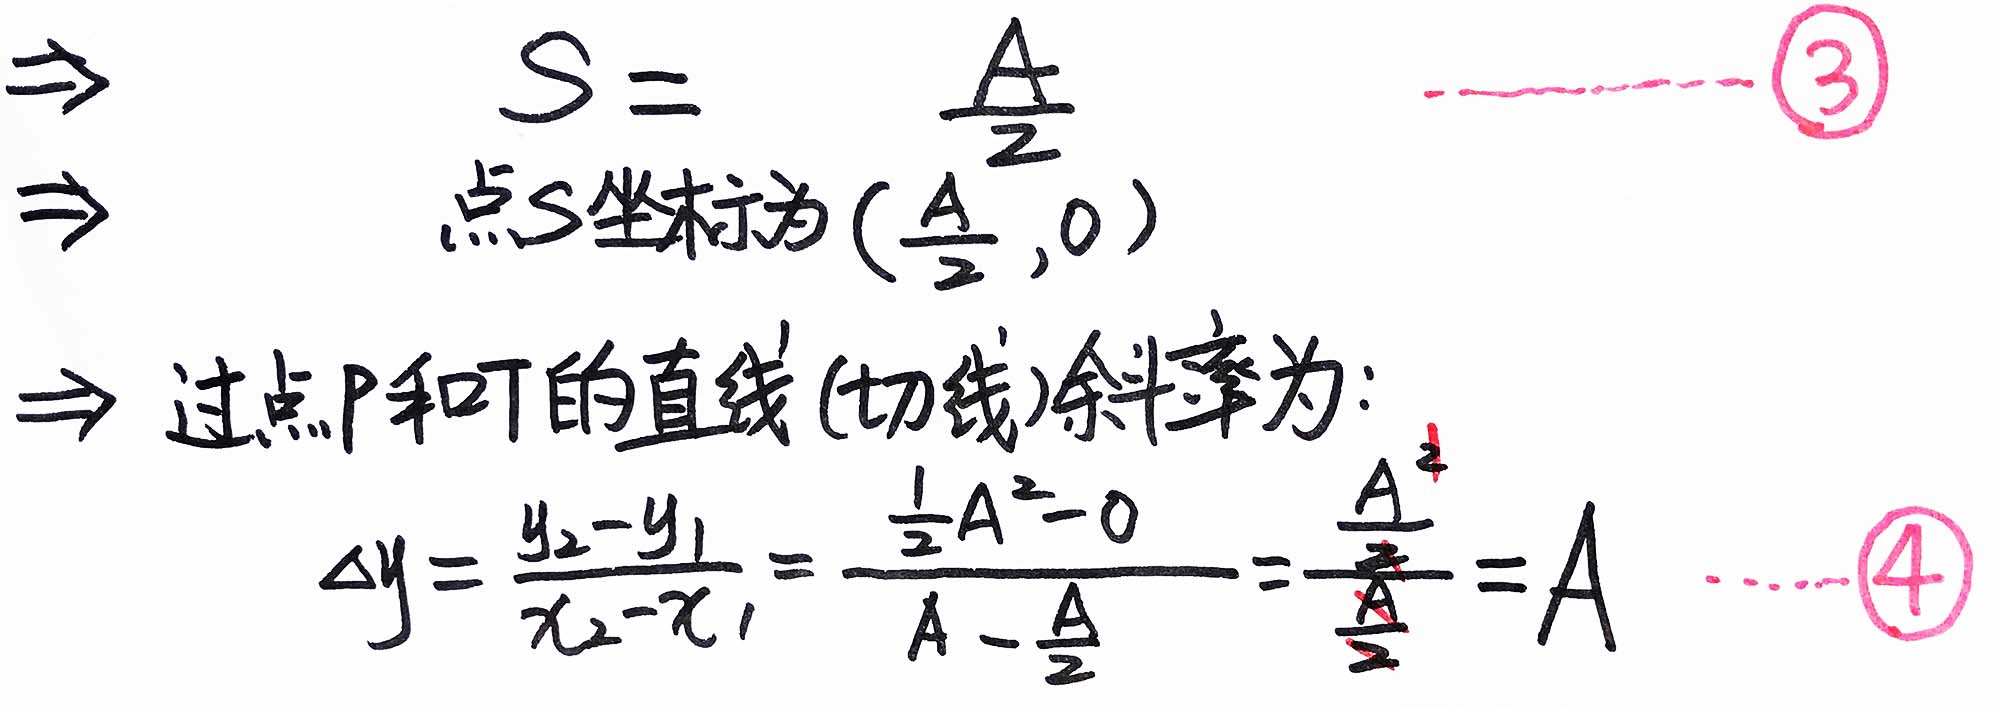 ⇒ S = A/2 ------③
⇒ 点S坐标为(A/2,0)
⇒ 过点P和T的直线(切线)斜率为:
△y = (y₂-y₁)/(x₂-x₁) = (1/2A²-0)/(A-A/2) = (A²/2)/(A/2) = A ------④